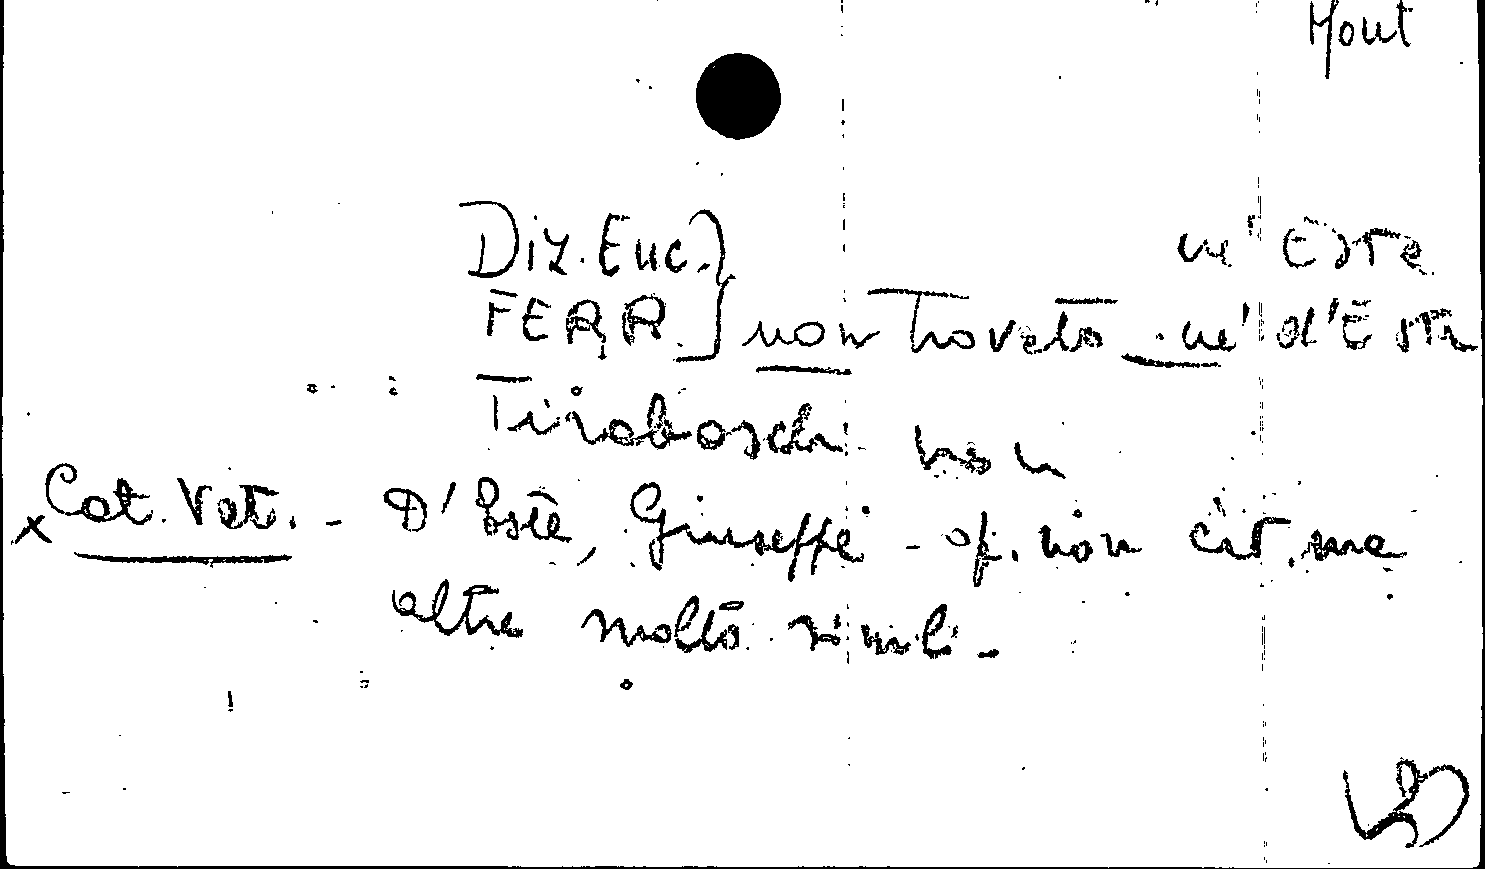 Mont
Diz. Enc. } né Este
FERR. } non trovato né d'Este
Tiraboschi non
x Cat. Vat. - D'Este, Giuseppe - op. non cit. ma
altre molto simili -